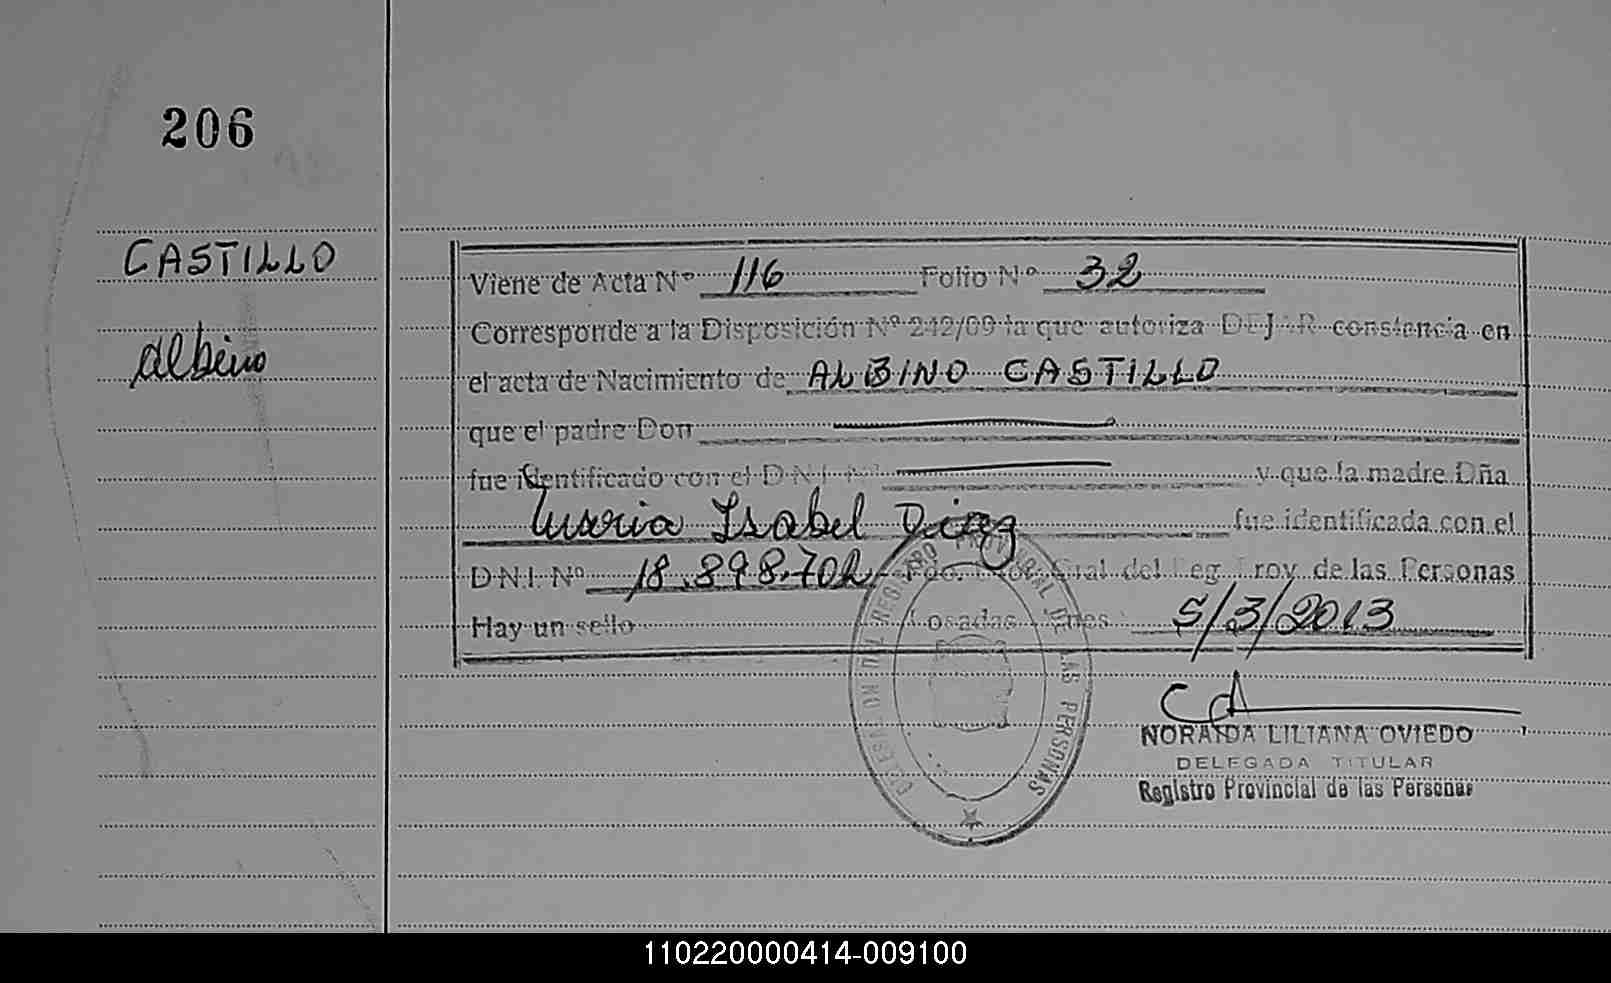 206
CASTILLO
Albino
Viene de Acta Nº 116 Folio Nº 32
Corresponde a la Disposición Nº 242/09 la que autoriza DEJAR constancia en
el acta de Nacimiento de ALBINO CASTILLO
que el padre Don
fue identificado con el D.N.I. Nº y que la madre Dña
Maria Isabel Diaz fue identificada con el
D.N.I. Nº 18.898.702 Gral del Reg. Prov. de las Personas
Hay un sello Posadas Mnes: 5/3/2013
DEL REGISTRO PROVINCIAL DE LAS PERSONAS
NORAIDA LILIANA OVIEDO
DELEGADA TITULAR
Registro Provincial de las Personas
110220000414-009100